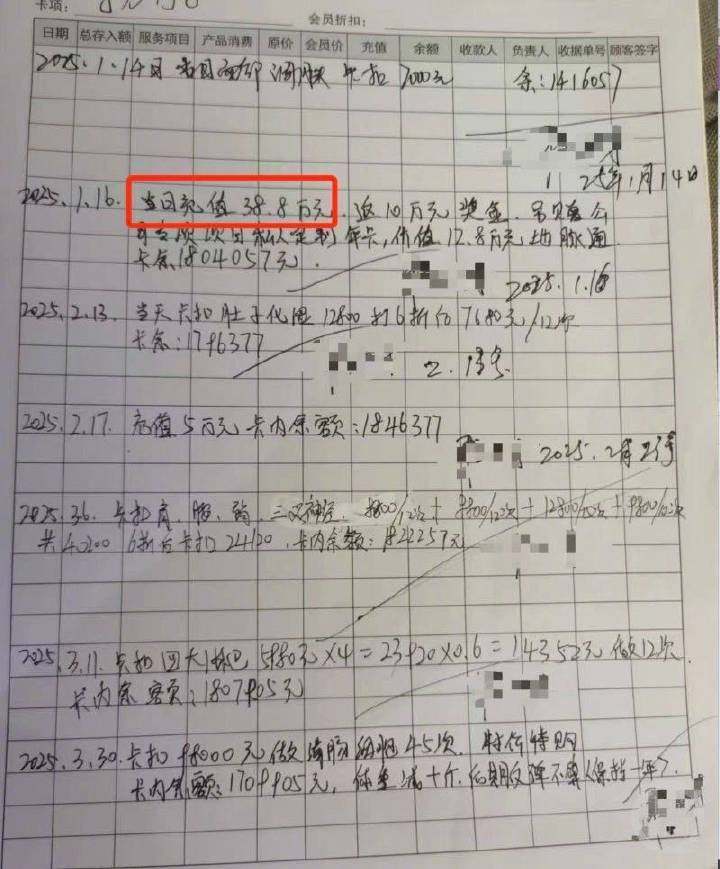 卡项：
会员折扣：
日期 总存入额 服务项目 产品消费 原价 会员价 充值 余额 收款人 负责人 收据单号 顾客签字
2025.1.14日 当日 卡扣 7000元 余：1416057
25年1月14日
2025.1.16. 当日充值38.8万元.返10万元奖金.
年卡,价值12.8万元地脉通
卡余1804057元.
2025.1.16
2025.2.13. 当天卡扣肚子化温12800打6折后7680元/12次
卡余：1796377
2.13号
2025.2.17. 充值5万元卡内余额：1846377
2025.2月
2025.3.6. 卡扣肩、腰、三叉神经. 9800/12次+ 12800/12次+9800/12次
共40200 6折后卡扣24120.卡内余额：1822257元
2025.3.11.卡扣四大 5980元×4=23920×0.6=14352元做12次.
卡内余额：1807905元
2025.3.30.卡扣98000元做 45次.特价特购
卡内余额：1709905元,体重减十斤.后期反弹不算(保持一年).